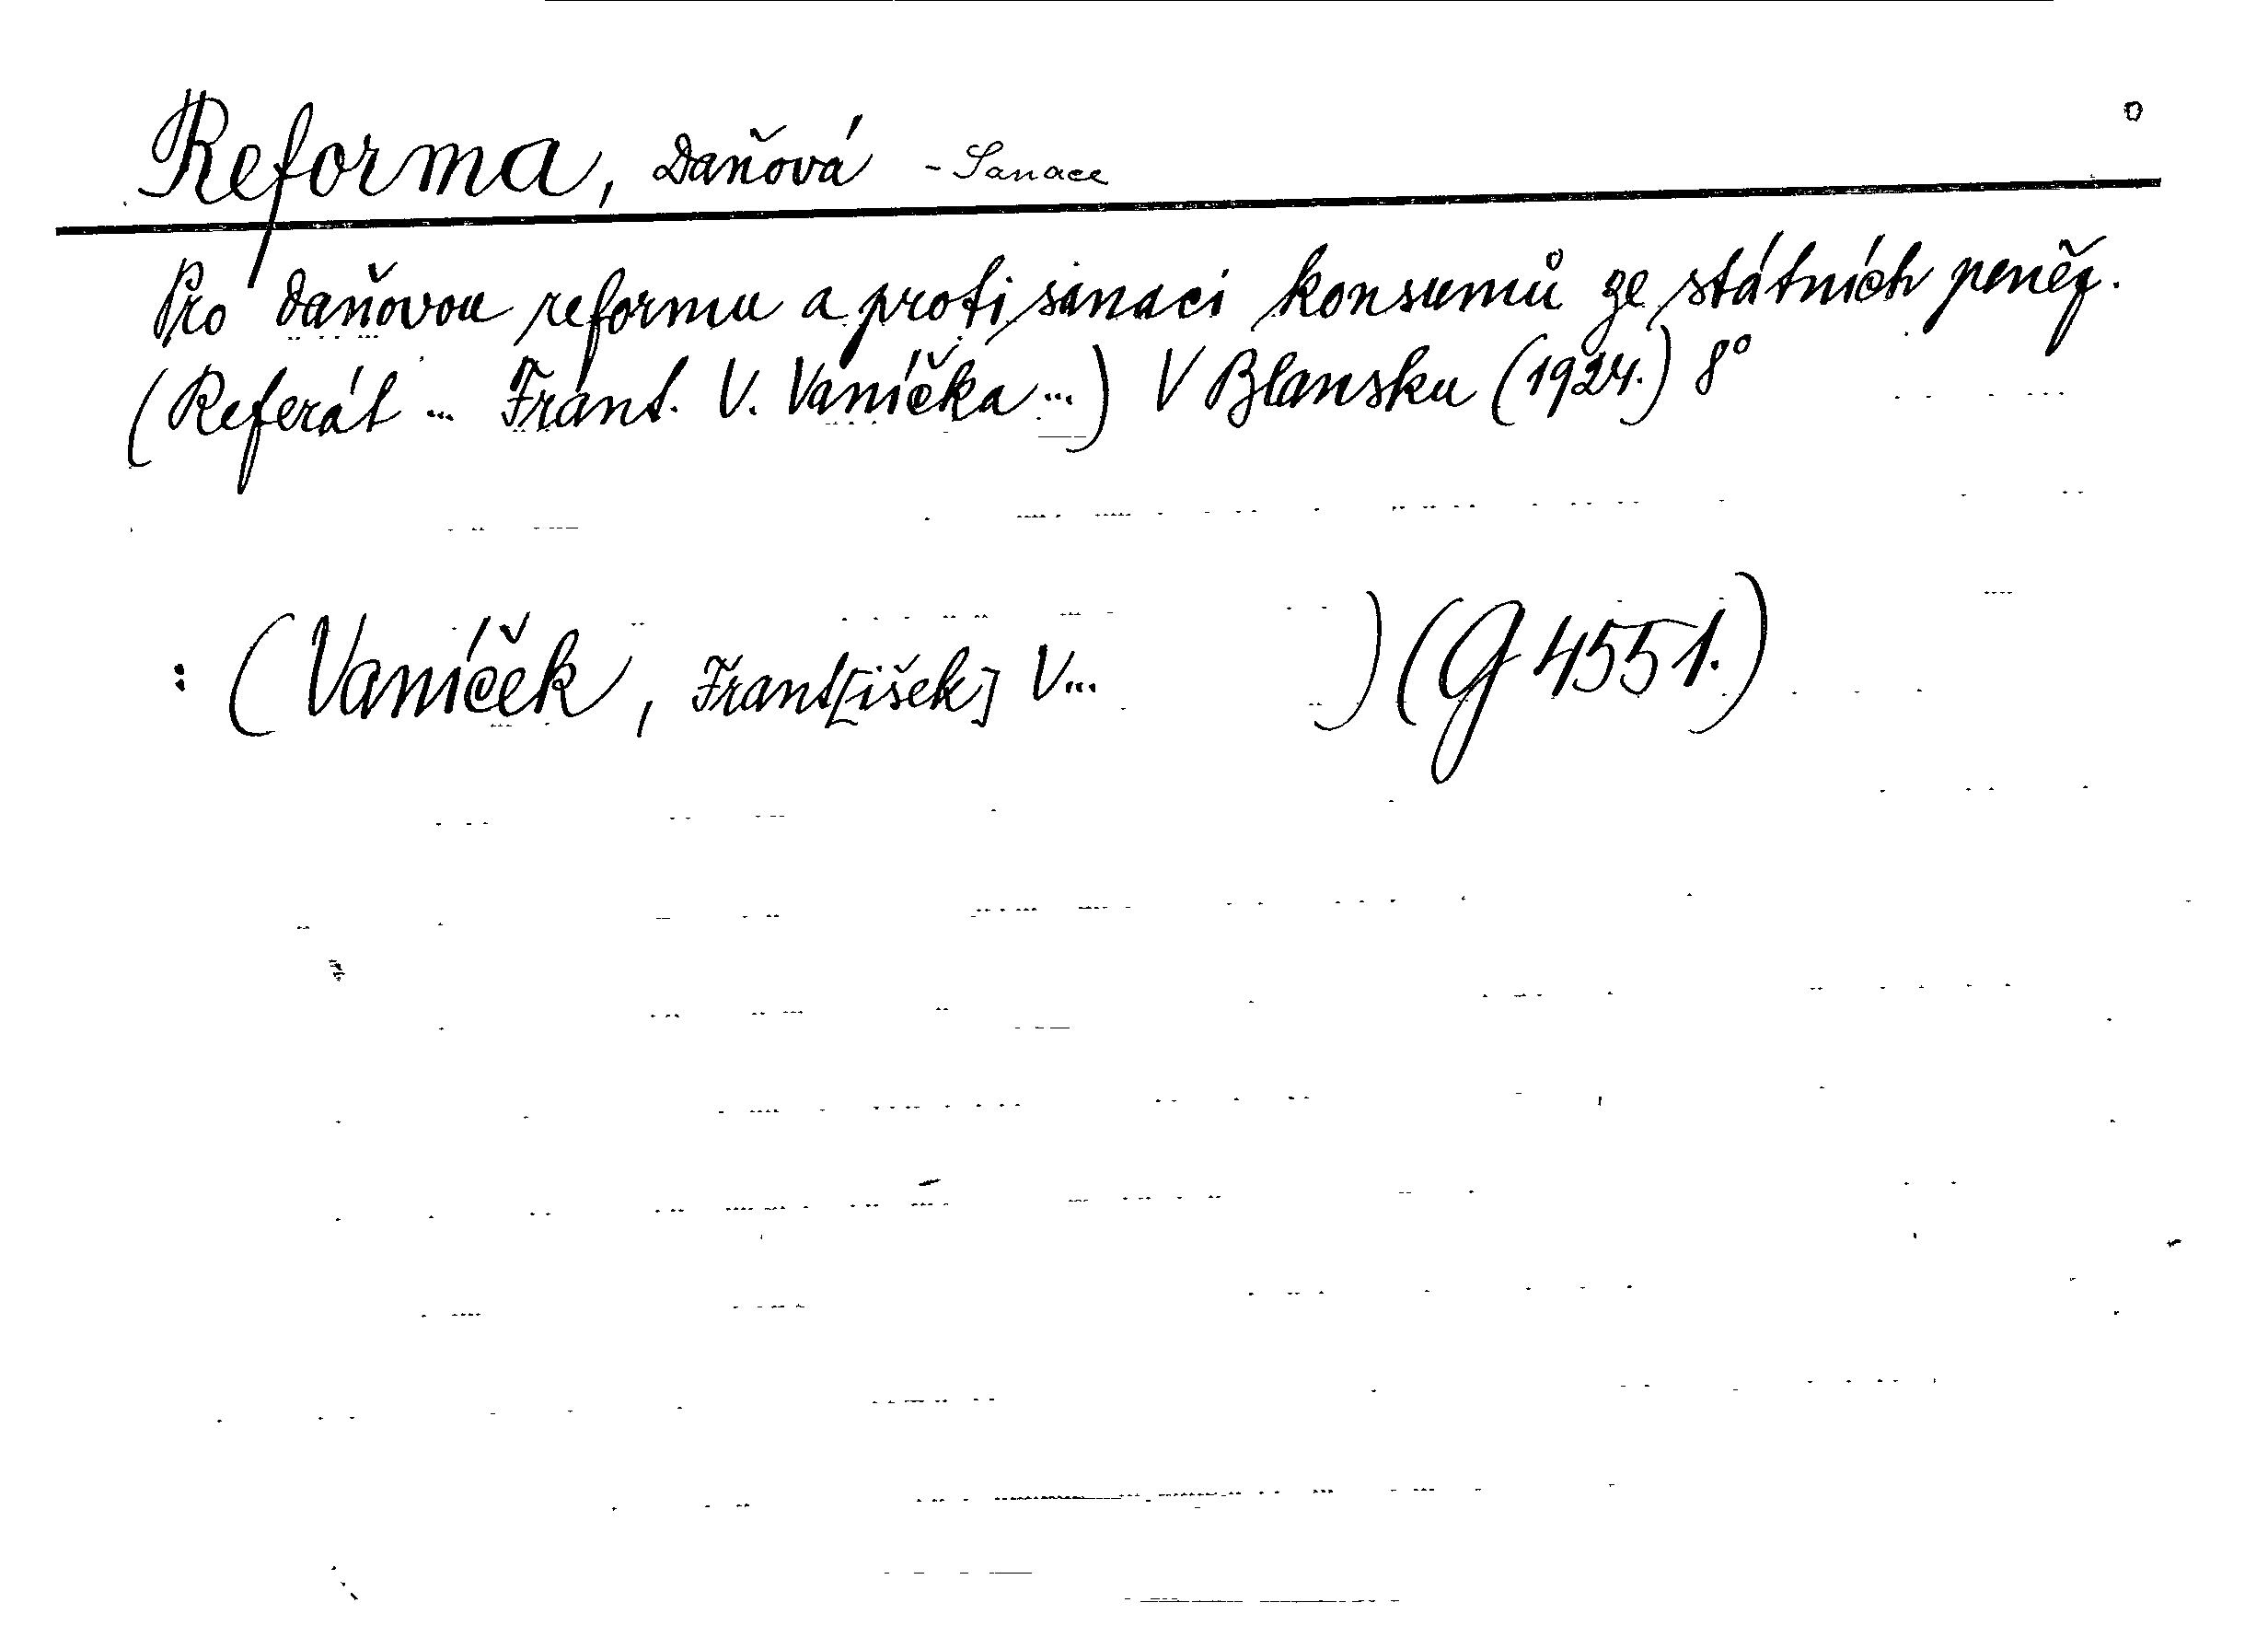 Reforma, daňová - Sanace
Pro daňovou reformu a proti sanaci konsumů ze státních peněz.
(Referát ... Frant. V. Vaníčka ...) V Blansku (1924.) 8°
: (Vaníček, Frant[išek] V... ) (G 4551.)